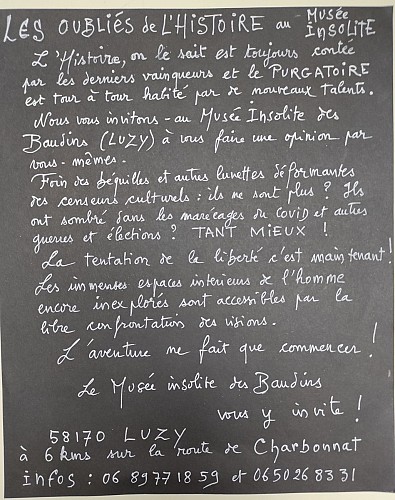 LES OUBLIÉS de L'HISTOIRE au MUSÉE INSOLITE
L'Histoire, on le sait est toujours contée
par les derniers vainqueurs et le PURGATOIRE
est tour à tour habité par de nouveaux talents.
Nous vous invitons - au Musée Insolite des
Baudins (LUZY) à vous faire une opinion par
vous-mêmes.
Foin des béquilles et autres lunettes déformantes
des censeurs culturels : ils ne sont plus ? Ils
ont sombré dans les marécages du COVID et autres
guerres et élections ? TANT MIEUX !
La tentation de la liberté c'est maintenant !
Les immenses espaces intérieurs de l'homme
encore inexplorés sont accessibles par la
libre confrontation des visions.
L'aventure ne fait que commencer !
Le Musée insolite des Baudins
vous y invite !
58170 LUZY
à 6 kms sur la route de Charbonnat
infos : 06 89 77 18 59 et 06 50 26 83 31